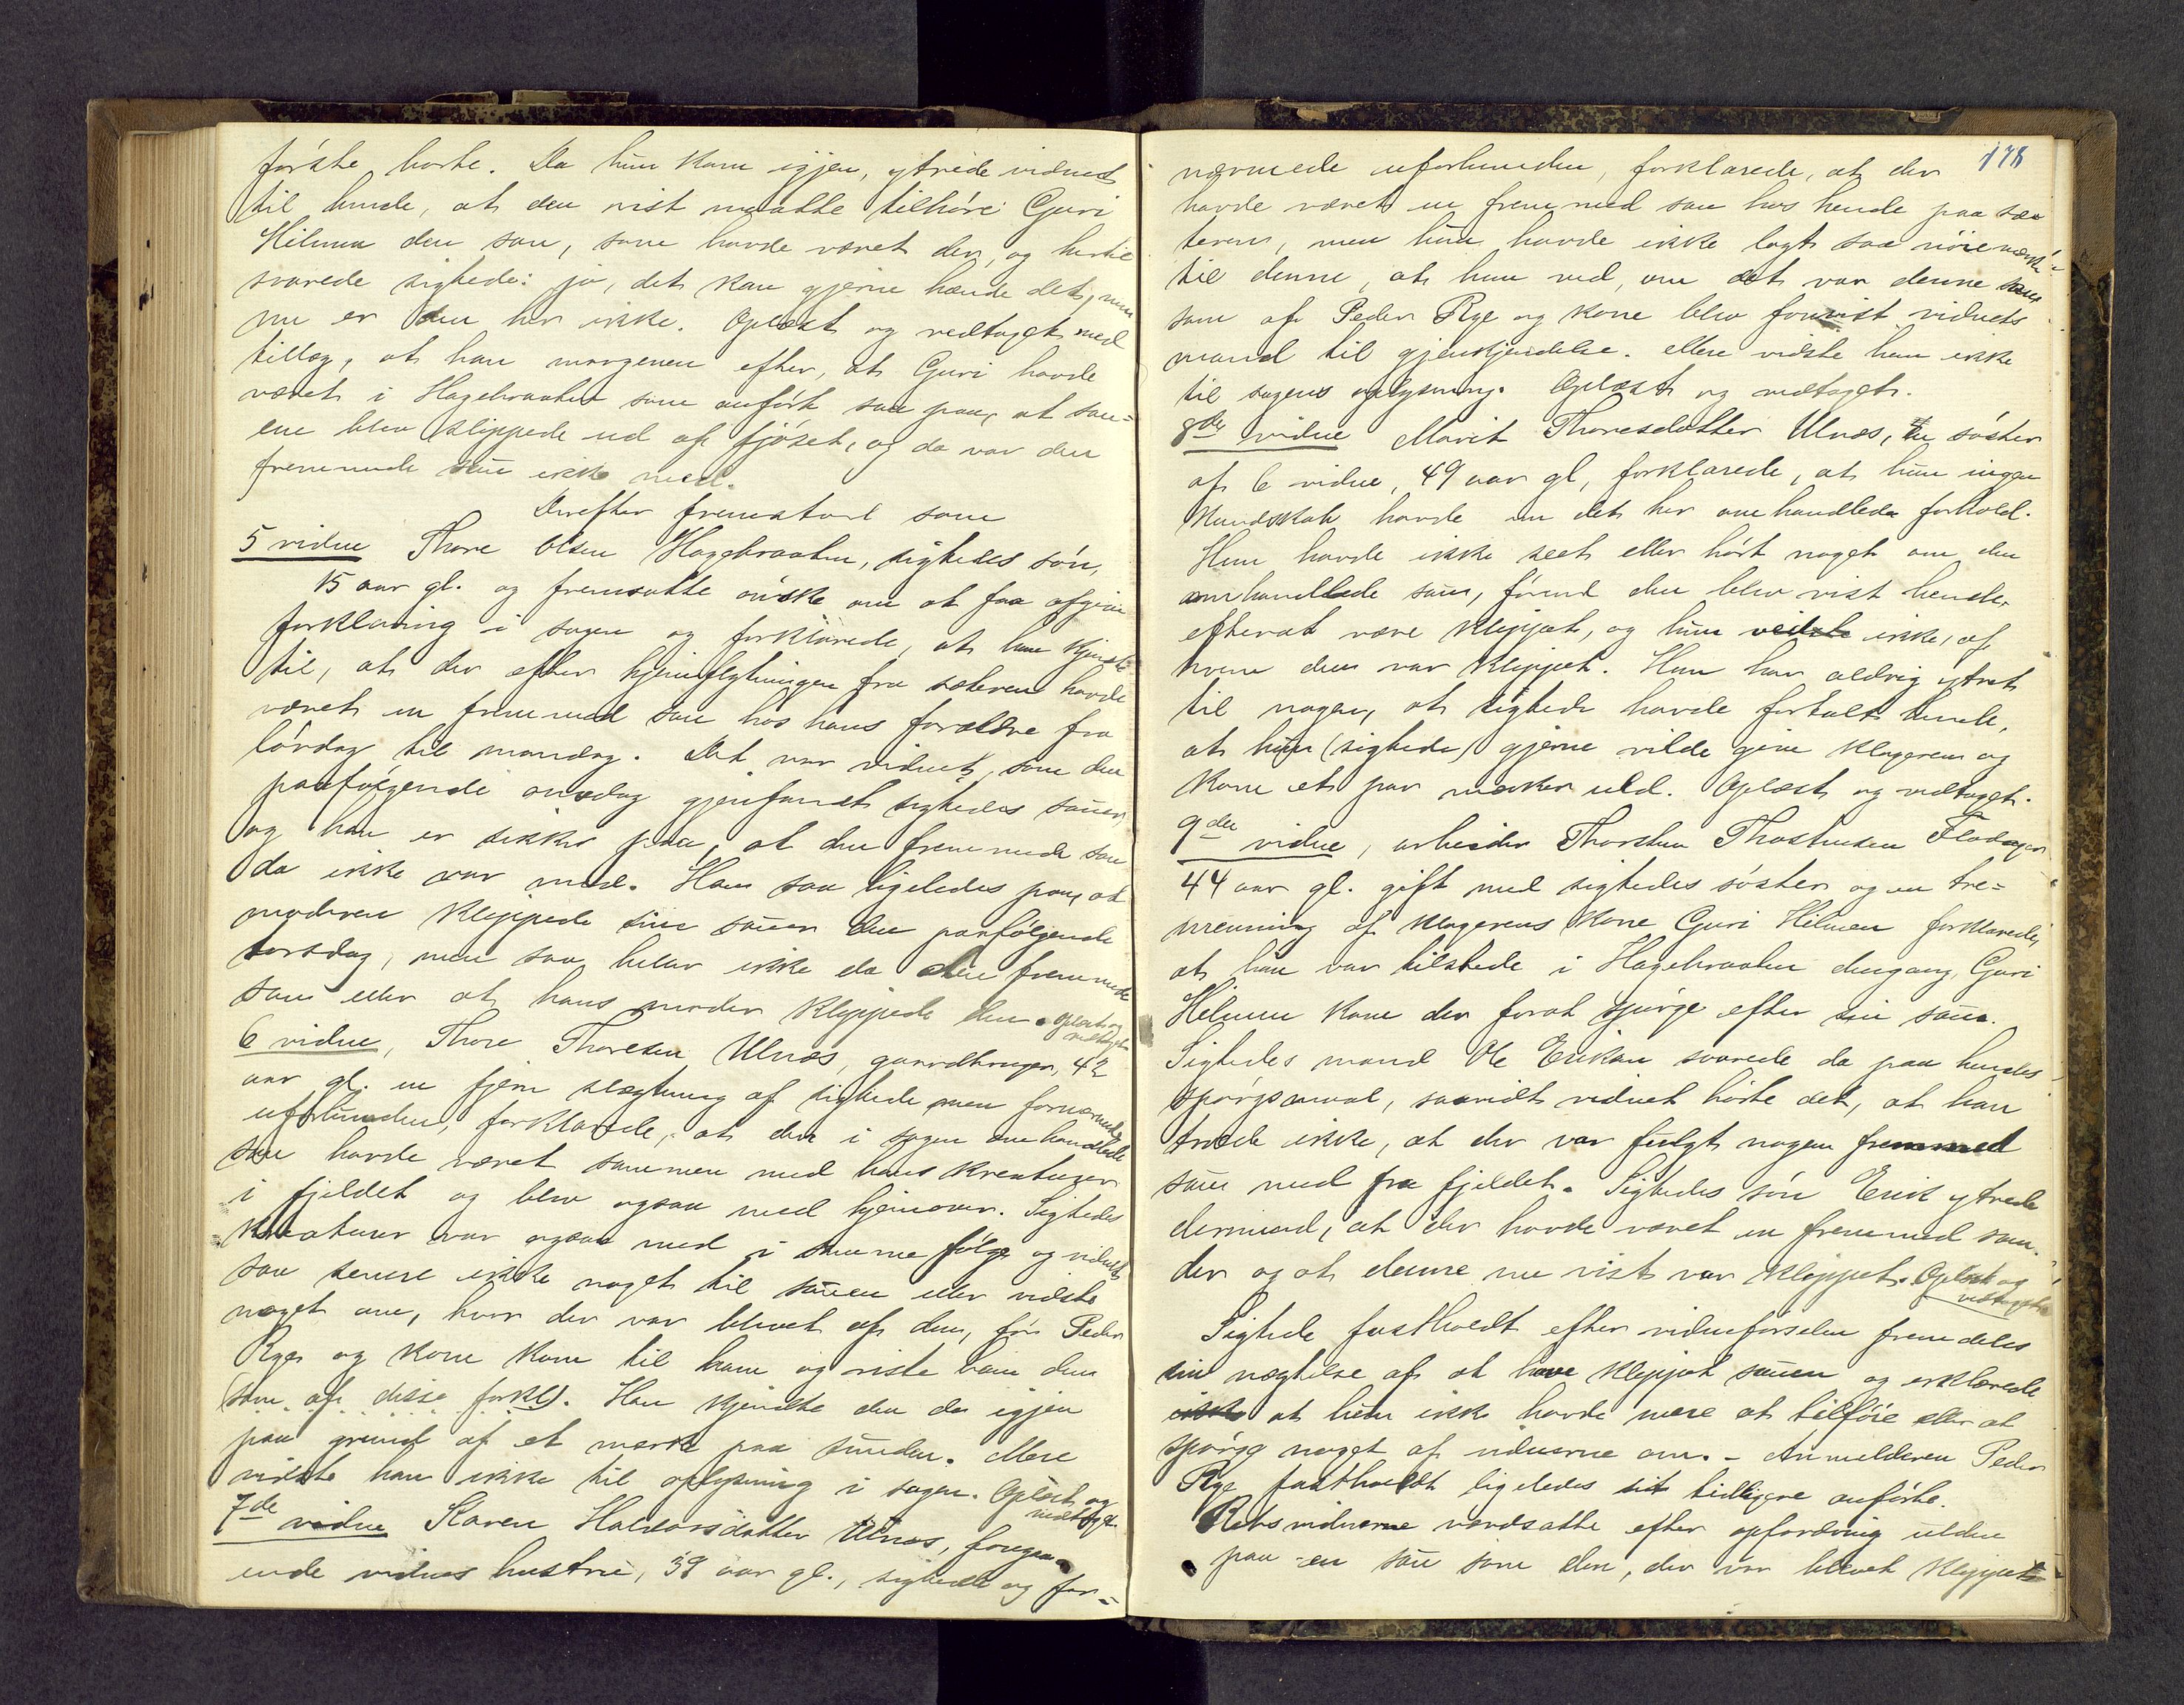 første hørte. Da hun kom igjen, ytrede vidnet
til hende, at den vist maatte tilhøre Guri
Hilmen den sau, som havde været der, og hertil
svarede sigtede: jo, det kan gjerne hænde det, men
nu er den her ikke. Oplæst og vedtaget med
tillæg, at han morgenen efter, at Guri havde
været i Hagebraaten som anført saa paa, at sau-
ene blev slippede ud af fjøset, og da var den
fremmede sau ikke med.
Derefter fremstod som
5 vidne Thore Olsen Hagebraaten, sigtedes søn,
15 aar gl. og fremsatte ønske om at faa afgive
forklaring i sagen og forklarede, at han kjendte
til, at der efter hjemflytningen fra sæteren havde
været en fremmed sau hos hans forældre fra
lørdag til mandag. Det var vidnet, som den
paafølgende onsdag gjenfandt sigtedes sauer,
og han er sikker paa, at den fremmede sau
da ikke var med. Han saa ligeledes paa, at
moderen klippede sine sauer den paafølgende
torsdag, men saa heller ikke da den fremmede
sau eller at hans moder klippede den. Oplæst og
vedtaget
6 vidne, Thore Thoresen Ulnæs, gaardbruger, 42
aar gl. en fjern slægtning af sigtede men fornærmede
uforbunden, forklarede, at den i sagen omhandlede
sau havde været sammen med hans kreaturer
i fjeldet og blev ogsaa med hjemover. Sigtedes
kreaturer var ogsaa med i samme følge og vidnet
saa senere ikke noget til sauen eller vidste
noget om, hvor der var blevet af den, før Peder
Rye og kone kom til ham og viste ham den
(som af disse forkl). Han kjendte den da igjen
paa grund af et mærke paa snuden. Mere
vidste han ikke til oplysning i sagen. Oplæst og
vedtaget.
7de vidne Karen Haldorsdatter Ulnæs, foregaa-
ende vidnes hustru, 39 aar gl., sigtede og for-
178
nærmede uforbunden, forklarede, at der
havde været en fremmed sau hos hende paa sæ-
teren, men hun havde ikke lagt saa nøie mærke
til denne, at hun ved, om det var denne sau
som af Peder Rye og kone blev forevist vidnets
mand til gjenkjendelse. Mere vidste hun ikke
til sagens oplysning. Oplæst og vedtaget.
8de vidne Marit Thoresdatter Ulnæs, en søster
af 6 vidne, 49 aar gl, forklarede, at hun ingen
kundskab havde om det her omhandlede forhold.
Hun havde ikke seet eller hørt noget om den
omhandlede sau, førend den blev vist hende,
efterat være klippet, og hun vidste ikke, af
hvem den var klippet. Hun har aldrig ytret
til nogen, at sigtede havde fortalt hende,
at hun (sigtede) gjerne vilde give klageren og
kone et par merker uld. Oplæst og vedtaget.
9de vidne, arbeider Thorsten Thorstensen
44 aar gl. gift med sigtedes søster og en tre-
menning af klagerens kone Guri Hilmen forklarede,
at han var tilstede i Hagebraaten dengang Guri
Hilmen kom der forat spørge efter sin sau.
Sigtedes mand Ole Eriksen svarede da paa hendes
spørgsmaal, saavidt vidnet hørte det, at han
troede ikke, at der var fulgt nogen fremmed
sau med fra fjeldet. Sigtedes søn Erik ytrede
derimod, at der havde været en fremmed sau
der og at denne nu vist var klippet. Oplæst og
vedtaget
Sigtede fastholdt efter vidneførselen fremdeles
sin nægtelse af at have klippet sauen og erklærede
at hun ikke havde mere at tilføie eller at
spørge noget af vidnerne om. - Anmelderen Peder
Rye fastholdt ligeledes sit tidligere anførte.
Retsvidnerne værdsatte efter opfordring ulden
paa en sau som den, der var blevet klippet